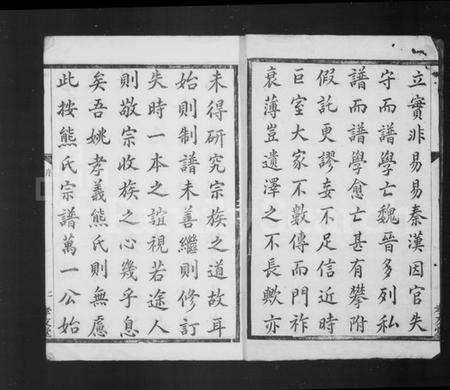 立實非易易秦漢因官失
守而譜學亡魏晉多列私
譜而譜學愈亡甚有攀附
假託更謬妄不足信近時
巨室大家不數傳而門祚
衰薄豈遺澤之不長歟亦
未得研究宗族之道故耳
始則制譜未善繼則修訂
失時一本之誼視若途人
則敬宗收族之心幾乎息
矣吾姚孝義熊氏則無慮
此按熊氏宗譜萬一公始
序
二